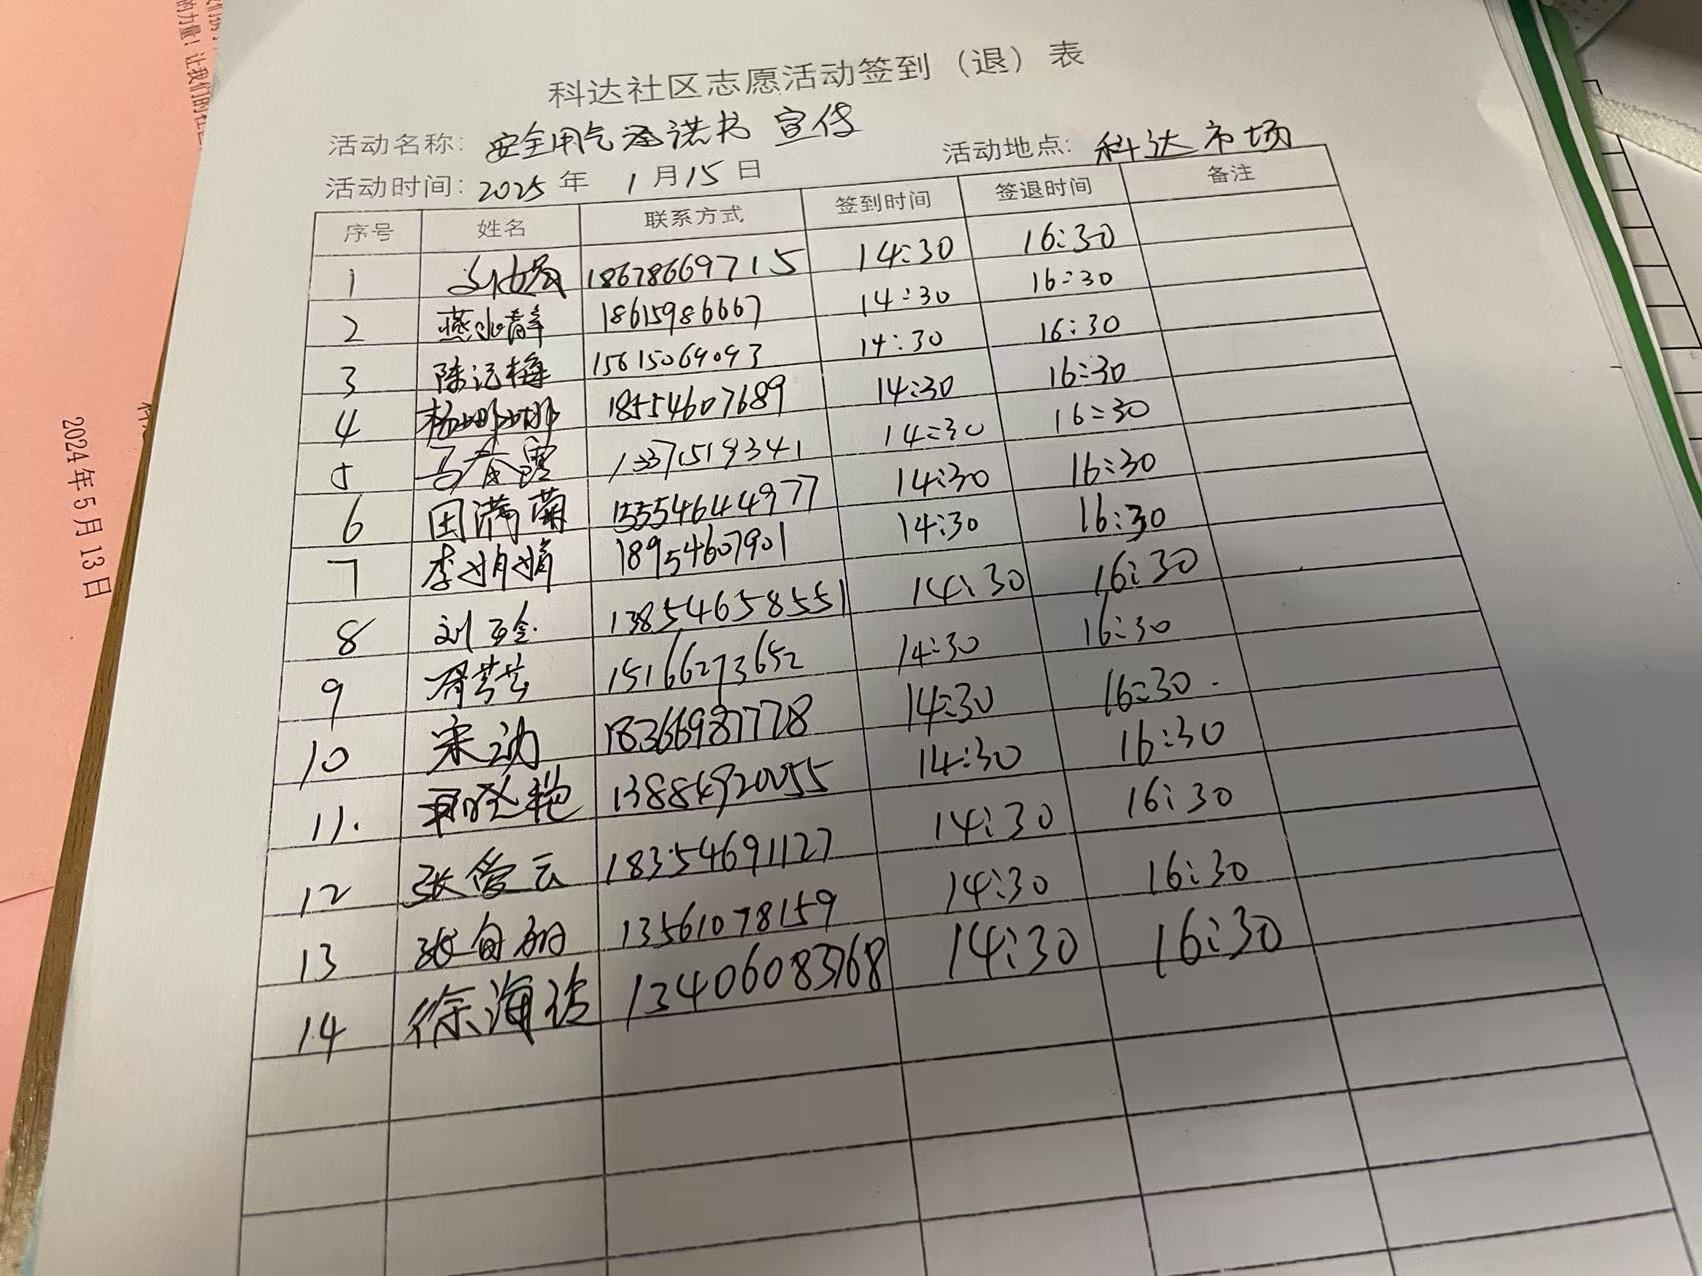 科达社区志愿活动签到（退）表
活动名称: 安全用气承诺书 宣传 活动地点: 科达市场
活动时间: 2025 年 1 月 15 日
序号 姓名 联系方式 签到时间 签退时间 备注
1 18678669715 14:30 16:30
2 燕冰静 18615986667 14:30 16:30
3 陈记梅 15615069093 14:30 16:30
4 杨娜娜 18554607689 14:30 16:30
5 马春霞 13371519341 14:30 16:30
6 田满菊 15554644977 14:30 16:30
7 李娟娟 18954607901 14:30 16:30
8 刘 13854658551 14:30 16:30
9 胥芸芸 15166273652 14:30 16:30
10 宋 18366987778 14:30 16:30
11. 13884920055 14:30 16:30
12 张爱云 18354691127 14:30 16:30
13 张 13561078159 14:30 16:30
14 徐海 13406083768 14:30 16:30
2024年5月13日
的力量！让我们的社